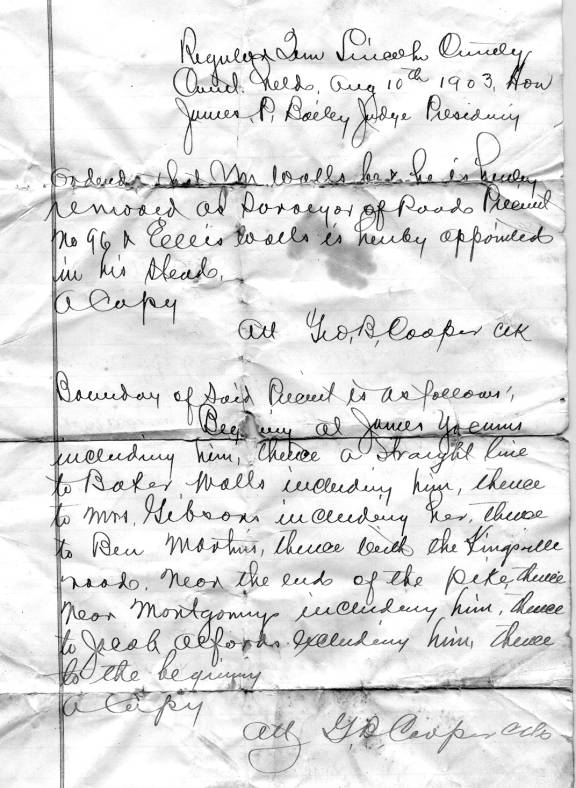 Regular Term Lincoln County
Court held, Aug 10th 1903, Hon
James P. Bailey Judge Presiding
Ordered that Wm Walls be & he is hereby
removed as Surveyor of Road Precinct
No 96 & Ellis Walls is hereby appointed
in his stead,
A Copy
Att Geo, B, Cooper clk
Boundary of said Precinct is as follows;
Beginning at James Yocums
including him, thence a straight line
to Baker Walls including him, thence
to Mrs, Gibsons including her, thence
to Ben Martins, thence with the Kingsville
road, Near the end of the pike thence
Near Montgomrys including him, thence
to Jacob Alfords excluding him, thence
to the beginning
A Copy
Att G, B, Cooper clk